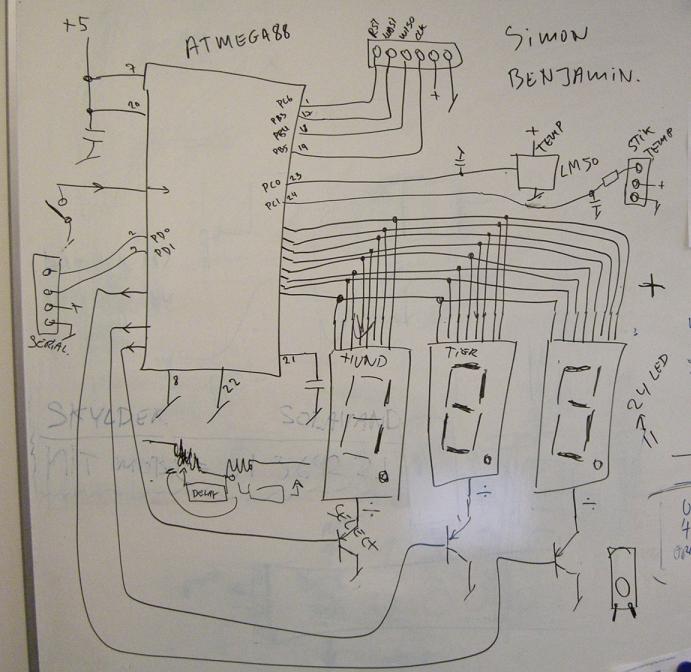 +5
ATMEGA88
RST MOSI MISO CLK
SIMON
BENJAMIN.
7
20
PC6 1
PB3 17
PB4 18
PB5 19
PC0 23
PC1 24
+
+
TEMP
LM50
STIK
TEMP
+
2 PD0
3 PD1
+
SERIAL
+
21
8
22
HUND
TIER
24 LED
SKYLDER
DELAY
4
÷
÷
÷
SELECT